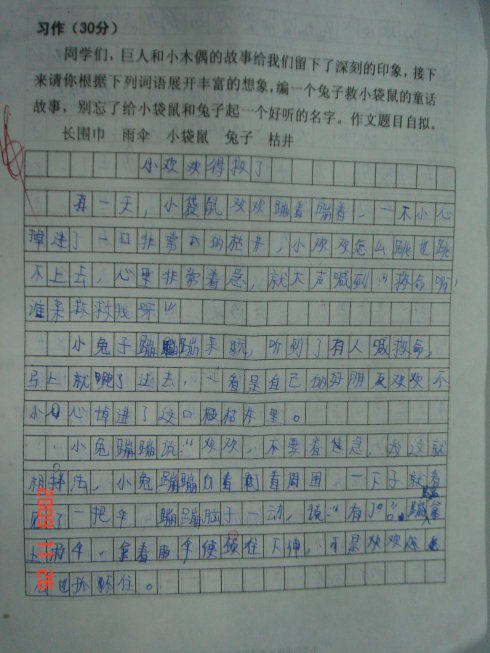 习作（30分）
同学们，巨人和小木偶的故事给我们留下了深刻的印象，接下
来请你根据下列词语展开丰富的想象，编一个兔子救小袋鼠的童话
故事，别忘了给小袋鼠和兔子起一个好听的名字。作文题目自拟。
长围巾 雨伞 小袋鼠 兔子 枯井
小欢欢得救了
有一天，小袋鼠欢欢蹦着蹦着，一不小心
掉进了一口非常大的枯井，小欢欢怎么跳也跳
不上去，心里非常着急，就大声喊到：“救命呀！
谁来救救我呀”
小兔子蹦蹦蹦来玩，听到了有人喊救命，
马上就跑了过去，一看是自己的好朋友欢欢不
小心掉进了这口枯井里。
小兔蹦蹦说：“欢欢，不要着急，我这就
想办法，小兔蹦蹦向着周围，一下子就看
见了一把伞，蹦蹦脑子一动，说：“有了”。蹦蹦
拿着雨伞使劲往下伸，可是欢欢